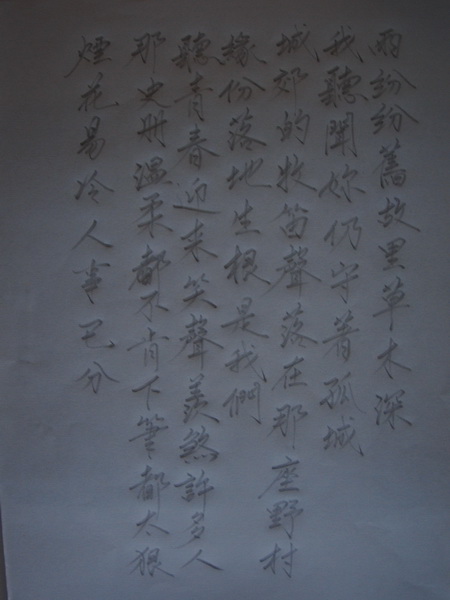 雨紛紛舊故里草木深
我聽聞妳仍守著孤城
城郊的牧笛聲落在那座野村
緣份落地生根是我們
聽青春迎来笑聲羨煞許多人
那史册溫柔都不肯下筆都太狠
煙花易冷人事已分